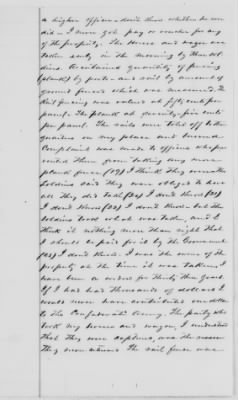 a higher officer and there whether he ever
did - I never got pay or voucher for any
of the property. The Horse and wagon was
taken early in the morning by the soldiers
quantity of fencing
(plank) by posts and rail by amount of
ground fenced which was measured. The
Rail fencing was valued at fifty cents per
panel. The plank at seventy-five cents
per panel. The rails were told off to the
on my place and
Complaint was made to officers who pre-
vented them from taking any more
plank fence (27) I think they were the
Soldiers said they were obliged to have
all they did take (28) I don't know (29)
I don't know (30) I don't know - but the
Soldiers took what was taken and I
think it nothing more than right that
I should be paid for it by the Government
(32) I don't know. I was the owner of the
property at the time it was taken, I
have been a widow for thirty three years.
If I had had thousands of dollars I
would never have contributed one dollar
to the Confederate Army. The party who
took my horse and wagon, I understand
that they were captured, was the reason
they never returned. The rail fence was